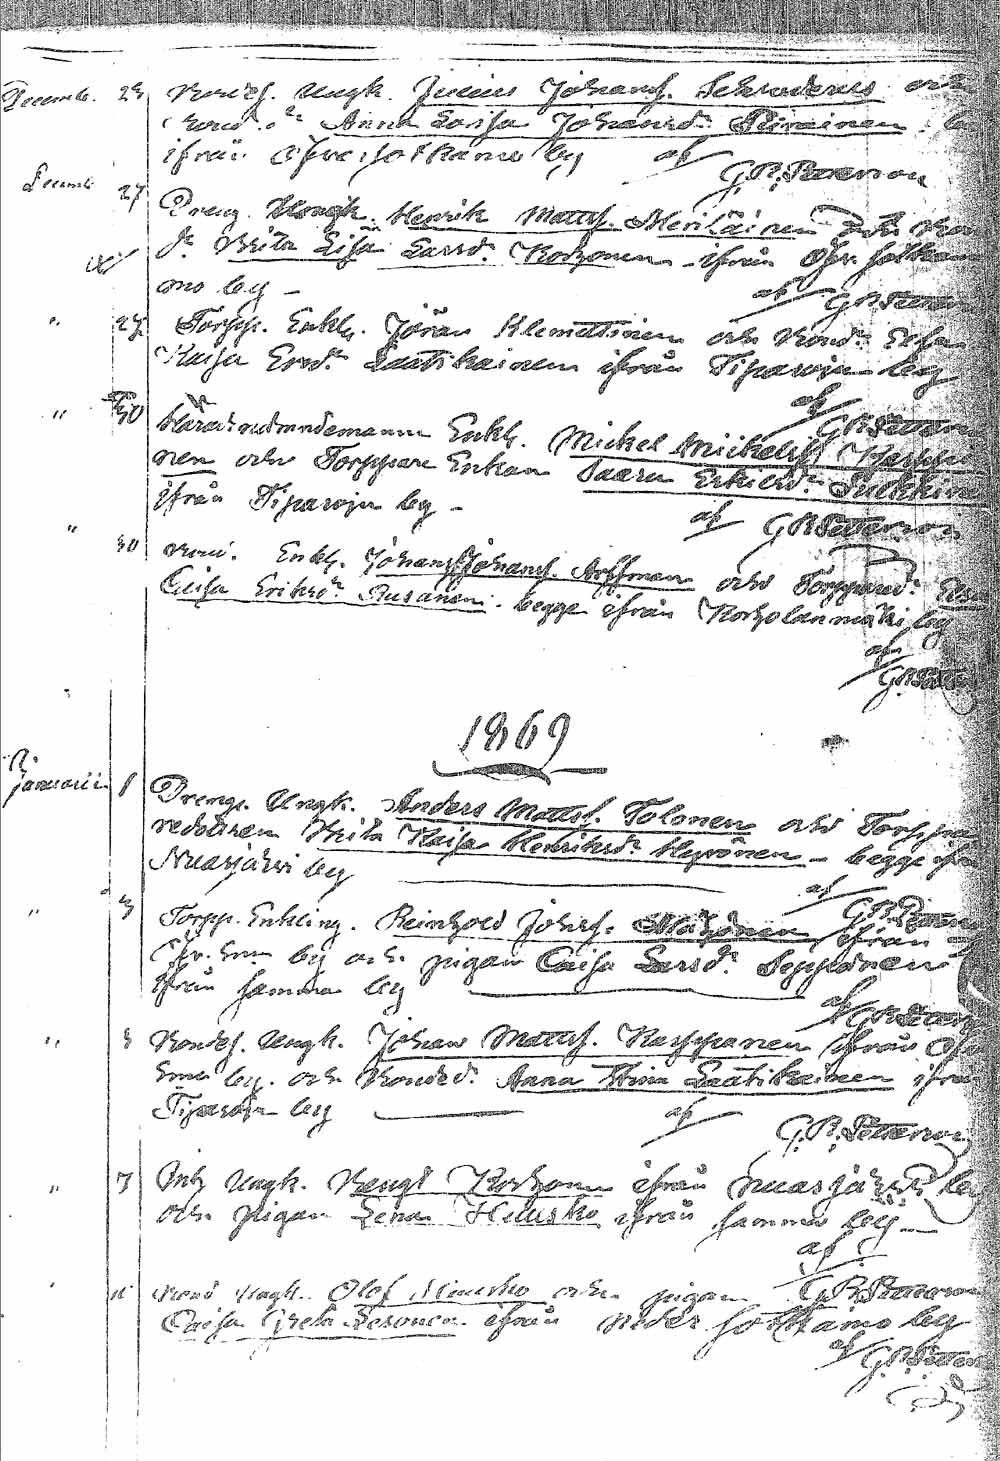 Decemb. 29 Bondes. Ungk. Johans. Schroderus och
Bond. d:r Anna Caisa Johansd:r Piirainen
ifrån Öfversotkamo by af G. R. Petterson
Decemb. 27 Dreng. Ungk. Henrik Matts. Meriläinen och
d:r Brita Lisa Larsd:r Korhonen ifrån Öfv. Sotka
mo by – af G R Petterson
" 27 Torpp. Enkl. Jöran Klemettinen och Bond. Elsa
Kaisa Ersd:r Laatikainen ifrån Tipasoja by
af G R Petterson
" 30 Häradsnämndemannen Enkl. Mickel Mickelss. Karppi
nen och Torppare Enkan Saara Erkilsd:r Pulkkine
ifrån Tipasoja by – af G R Petterson
" 30 Enkl. Johan Johans. Arffman och Torppared:r Elsa
Caisa Eriksd:r Rusanen begge ifrån Korholanmäki by
af G R Petterson
1869
Januarii 1 Drengs. Ungk. Anders Matts. Tolonen och Torppa
redottren Brita Kaisa Henriksd:r Hyvönen – begge ifrån
Nuasjärvi by af G. R. Petterson
" 3 Torpp. Enkling. Reinhold Johs. ifrån
by och pigan Caisa Larsd:r Seppänen
ifrån samma by af G R Petterson
" 3 Bondes. Ungk. Johan Matts. Karppanen ifrån
by. och Bonded. Anna Stina Laatikainen ifrån
Tipasoja by af G. R. Petterson
" 7 Inh Ungk. Bengt Korhonen ifrån Nuasjärvi by
och pigan Lena Heusko ifrån samma by –
af G R Petterson
Bond Ungk. Olof och pigan
Caisa Greta Leronen ifrån Neder Sotkamo by
af G. R. Petterson